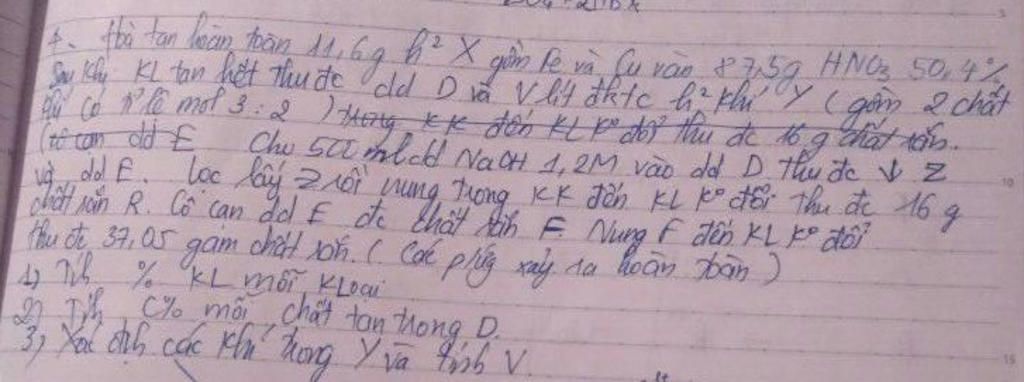 4. Hoà tan hoàn toàn 11,6g h² X gồm Fe và Cu vào 87,5g HNO3 50,4%
Sau khi KL tan hết thu đc dd D và V lít đktc h² khí Y (gồm 2 chất
khí có tỉ lệ mol 3:2) trong KK đến KL k° đổi thu đc 16 g chất rắn.
(cô cạn dd E Cho 500 ml dd NaOH 1,2M vào dd D thu đc ↓ Z
và dd E. Lọc lấy Z rồi nung trong KK đến KL k° đổi thu đc 16 g
chất rắn R. Cô cạn dd E đc chất rắn F. Nung F đến KL k° đổi
thu đc 37,05 gam chất rắn. (Các pứng xảy ra hoàn toàn)
1) Tính % KL mỗi KLoại
2) Tính C% mỗi chất tan trong D.
3) Xác định các khí trong Y và tính V.